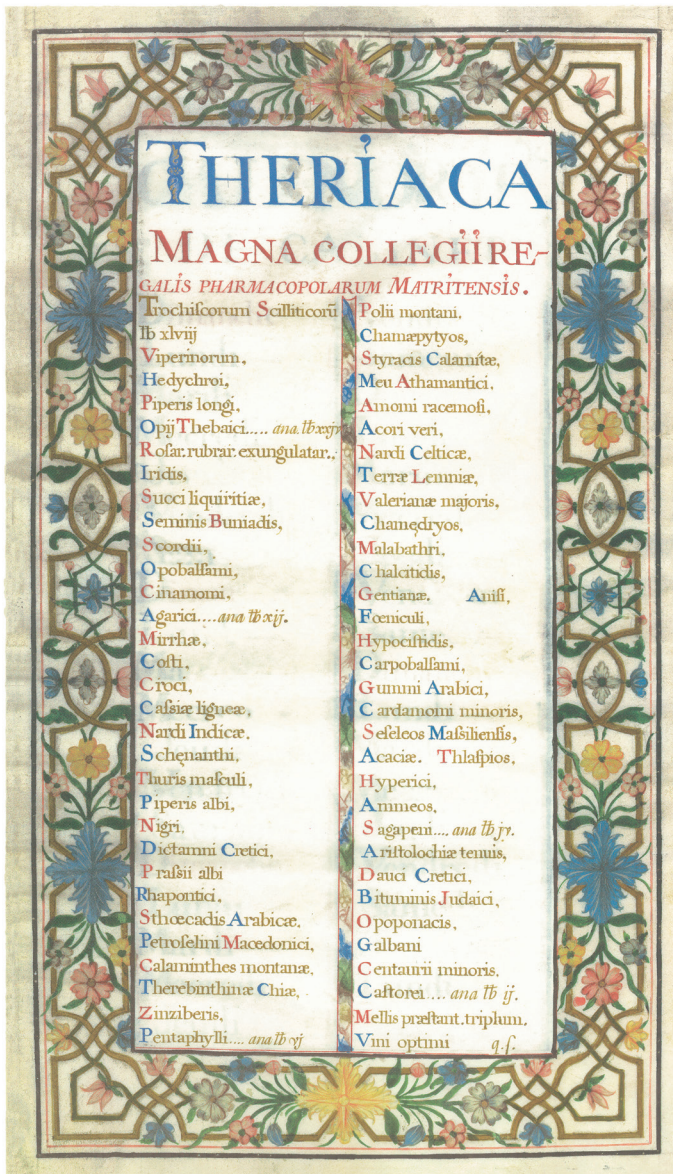 THERIACA
MAGNA COLLEGII RE-
GALIS PHARMACOPOLARUM MATRITENSIS.
Trochiſcorum Scilliticorũ
℔ xlviij
Viperinorum,
Hedychroi,
Piperis longi,
Opij Thebaici..... ana. ℔ xxjv
Roſar. rubrar. exungulatar.,
Iridis,
Succi liquiritiæ,
Seminis Buniadis,
Scordii,
Opobalſami,
Cinamomi,
Agarici.... ana ℔ xij.
Mirrhæ,
Coſti,
Croci,
Caſsiæ ligneæ,
Nardi Indicæ,
Schęnanthi,
Thuris maſculi,
Piperis albi,
Nigri,
Dictamni Cretici,
Praſsii albi
Rhapontici,
Sthœcadis Arabicæ,
Petroſelini Macedonici,
Calaminthes montanæ,
Therebinthinæ Chiæ,
Zinziberis,
Pentaphylli.... ana ℔ vj
Polii montani,
Chamæpytyos,
Styracis Calamitæ,
Meu Athamantici,
Amomi racemoſi,
Acori veri,
Nardi Celticæ,
Terræ Lemniæ,
Valerianæ majoris,
Chamędryos,
Malabathri,
Chalcitidis,
Gentianæ. Aniſi,
Fœniculi,
Hypociſtidis,
Carpobalſami,
Gummi Arabici,
Cardamomi minoris,
Seſeleos Maſsilienſis,
Acaciæ. Thlaſpios,
Hyperici,
Ammeos,
Sagapeni.... ana ℔ jv.
Ariſtolochiæ tenuis,
Dauci Cretici,
Bituminis Judaici,
Opoponacis,
Galbani
Centaurii minoris.
Caſtorei.... ana ℔ ij.
Mellis præſtant. triplum.
Vini optimi q.ſ.